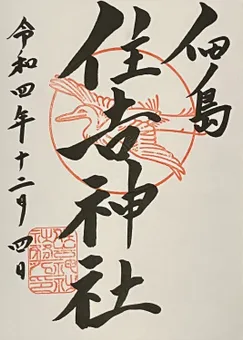 佃島
住吉神社
令和四年十二月四日